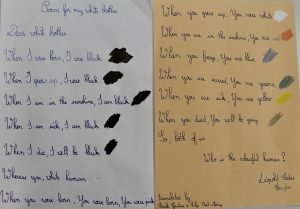 Poem for my white brother
Dear white brother
When I was born, I was black
When I grew up, I was black
When I am in the sunshine, I am black
When I am sick, I am black
When I die, I will be black
Whereas you, white human
When you were born, You were pink
When you grew up, You were white
When you are in the sunshine, You are red
When you freeze, You are blue
When you are scared, You are green
When you are sick, You are yellow
When you died, You will be grey
So, both of us
Who is the colourful human?
Léopold Sédar
Senghor